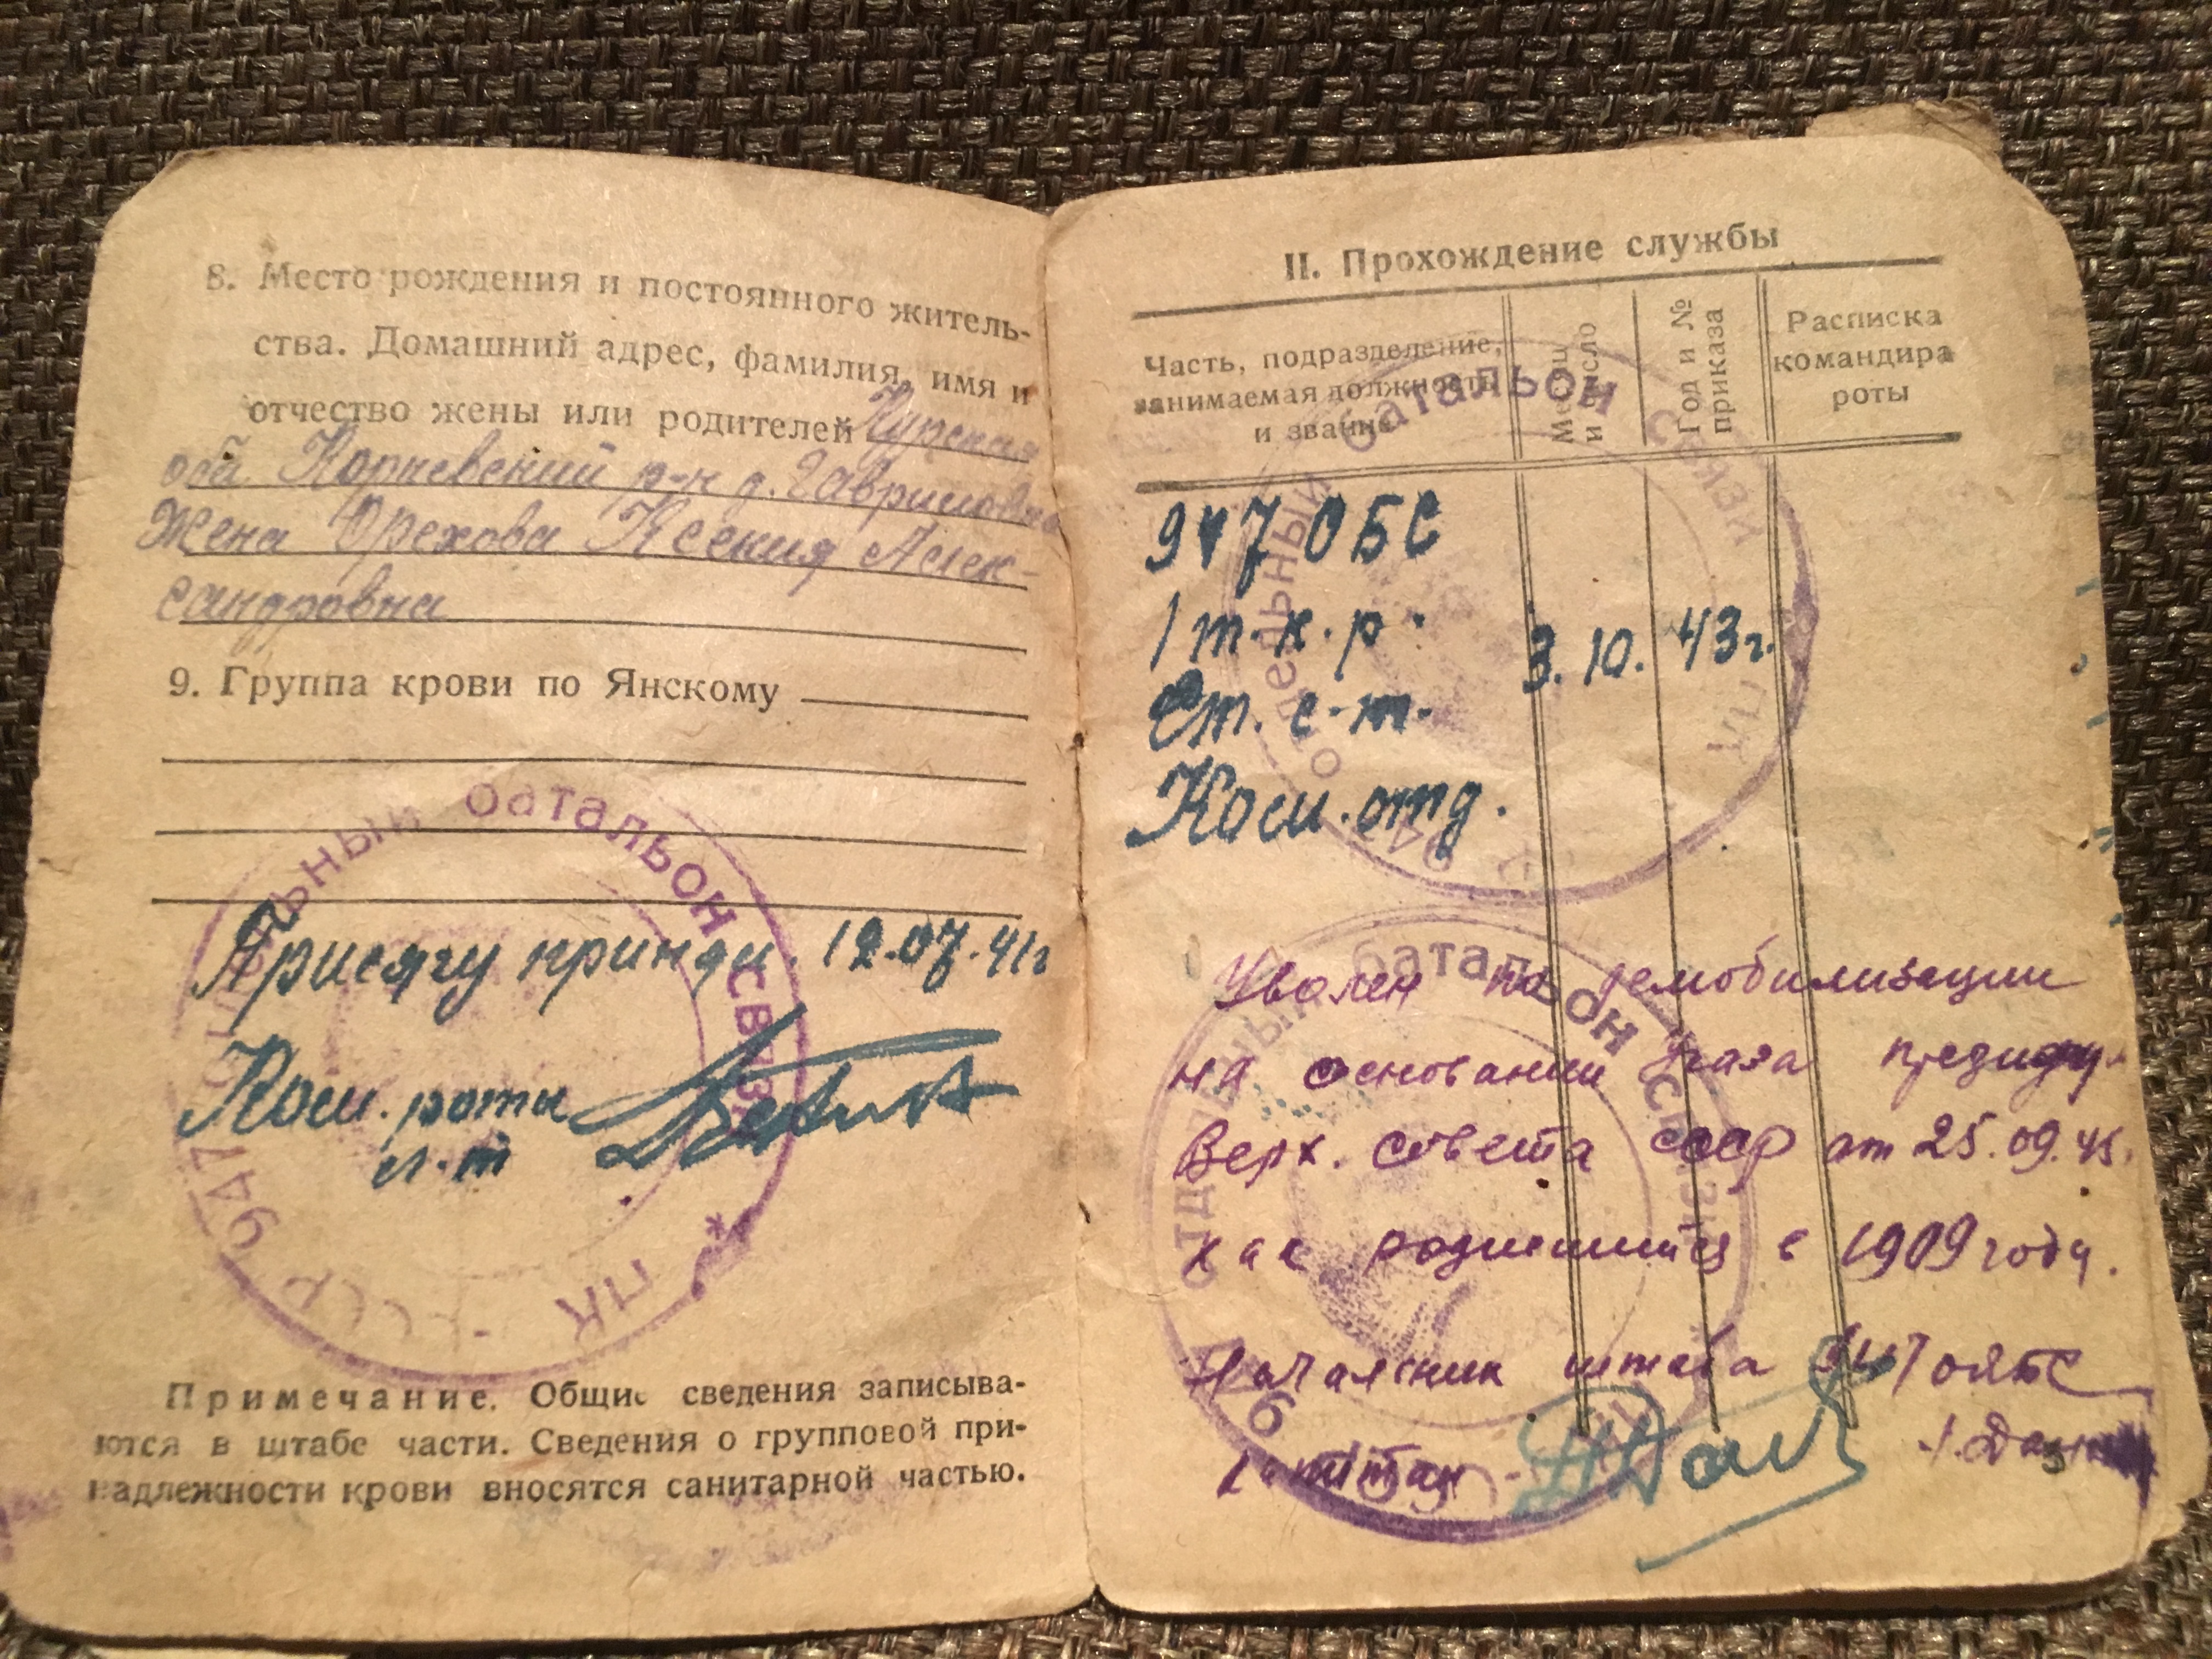 8. Место рождения и постоянного житель-
ства. Домашний адрес, фамилия, имя и
отчество жены или родителей Курская
обл. Кореневский р-н д. Гавриловка
Жена Орехова Ксения Алек-
сандровна
9. Группа крови по Янскому
отдельный батальон связи
Присягу принял. 12.07.41г
Ком. роты
л-т
947
СССР
Примечание. Общие сведения записыва-
ются в штабе части. Сведения о групповой при-
надлежности крови вносятся санитарной частью.
II. Прохождение службы
Часть, подразделение, занимаемая должность и звание
Месяц и число
Год и № приказа
Расписка командира роты
отдельный батальон связи
947 ОБС
1 т.к.р.
3.10. 43г.
Ст. с-т.
Ком. отд.
отдельный батальон связи
Уволен по демобилизации
на основании Указа президиу.
Верх. совета СССР от 25.09.45.
как родившийся в 1909 году.
Начальник штаба 947 ОБС
Капитан -